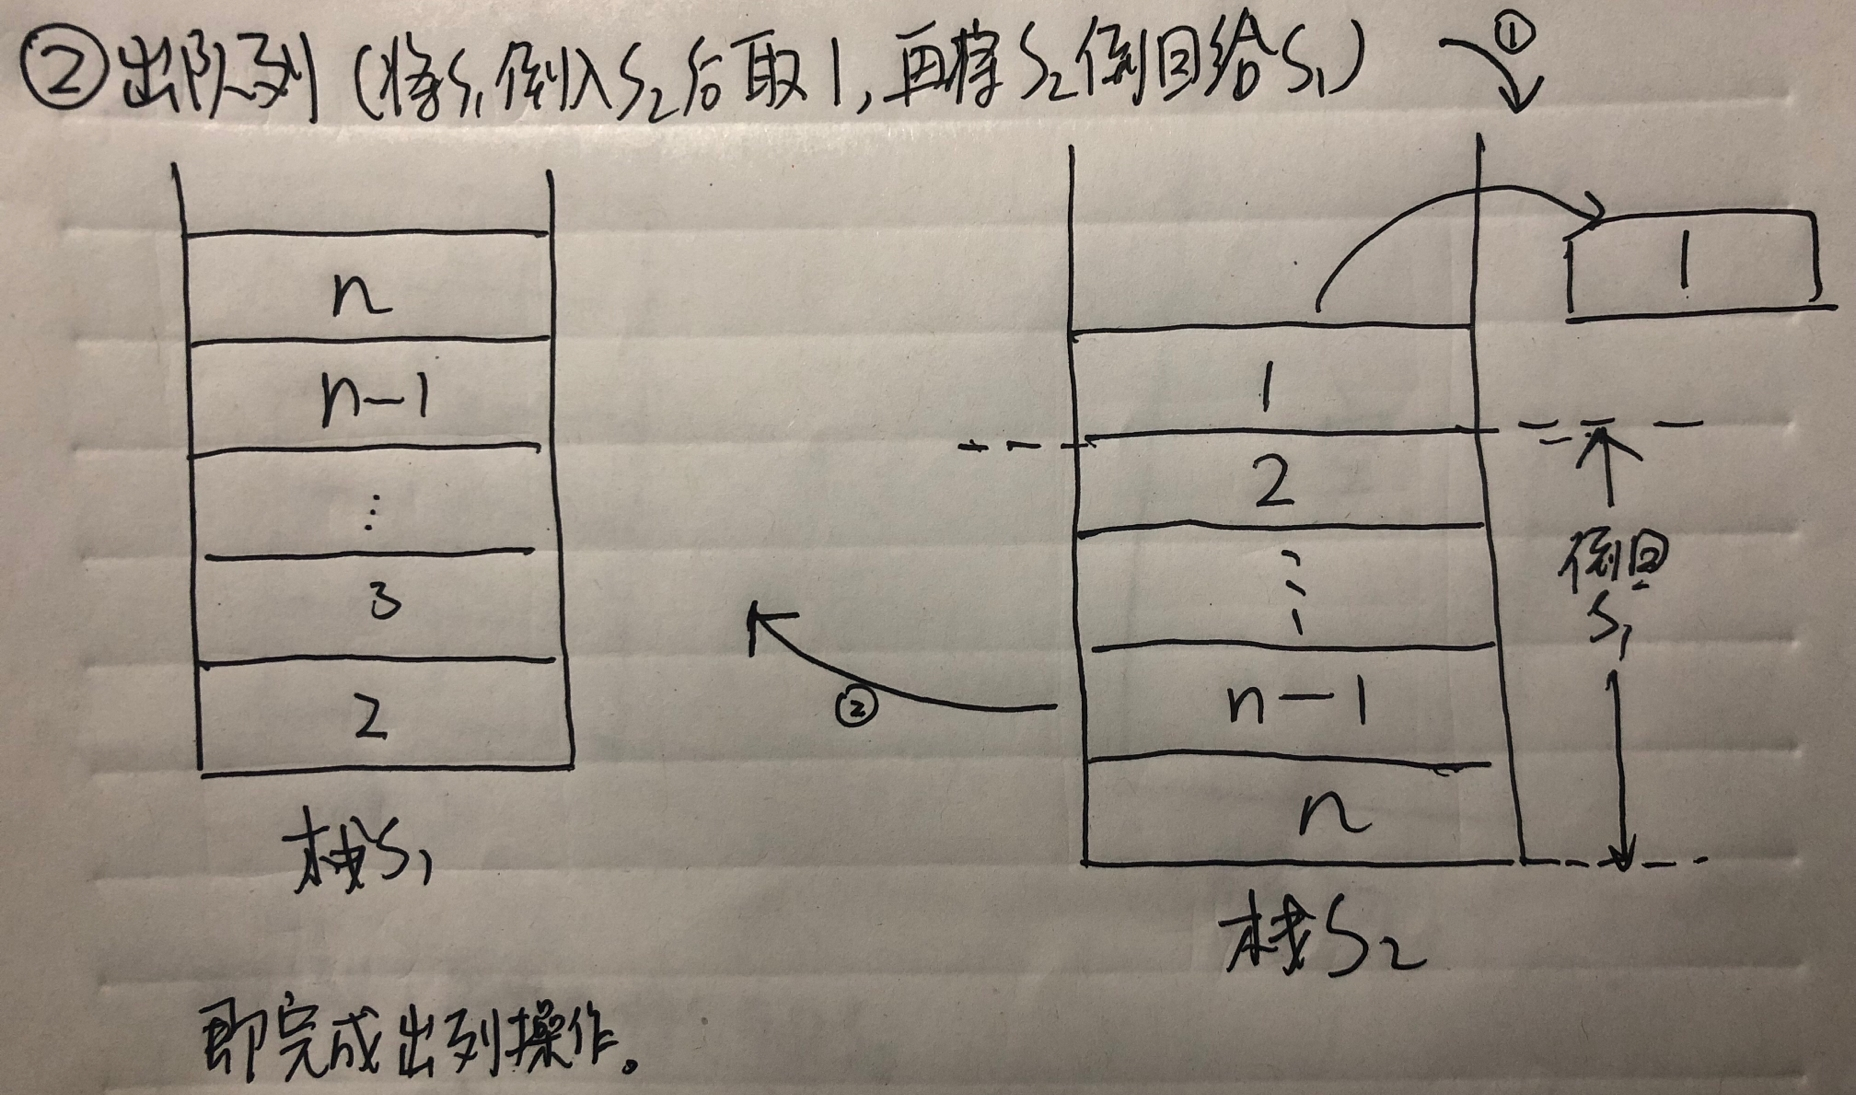 ②出队列(将S₁倒入S₂后取1,再将S₂倒回给S₁) ①
n
n-1
⋮
3
2
栈S₁
1
1
2
⋮
n-1
n
栈S₂
倒回
S₁
②
即完成出列操作。